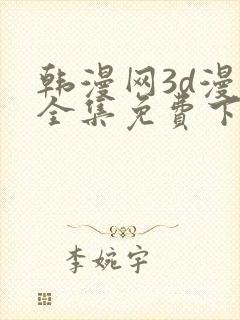 韩漫网3d漫
全集免費下
李婉宇